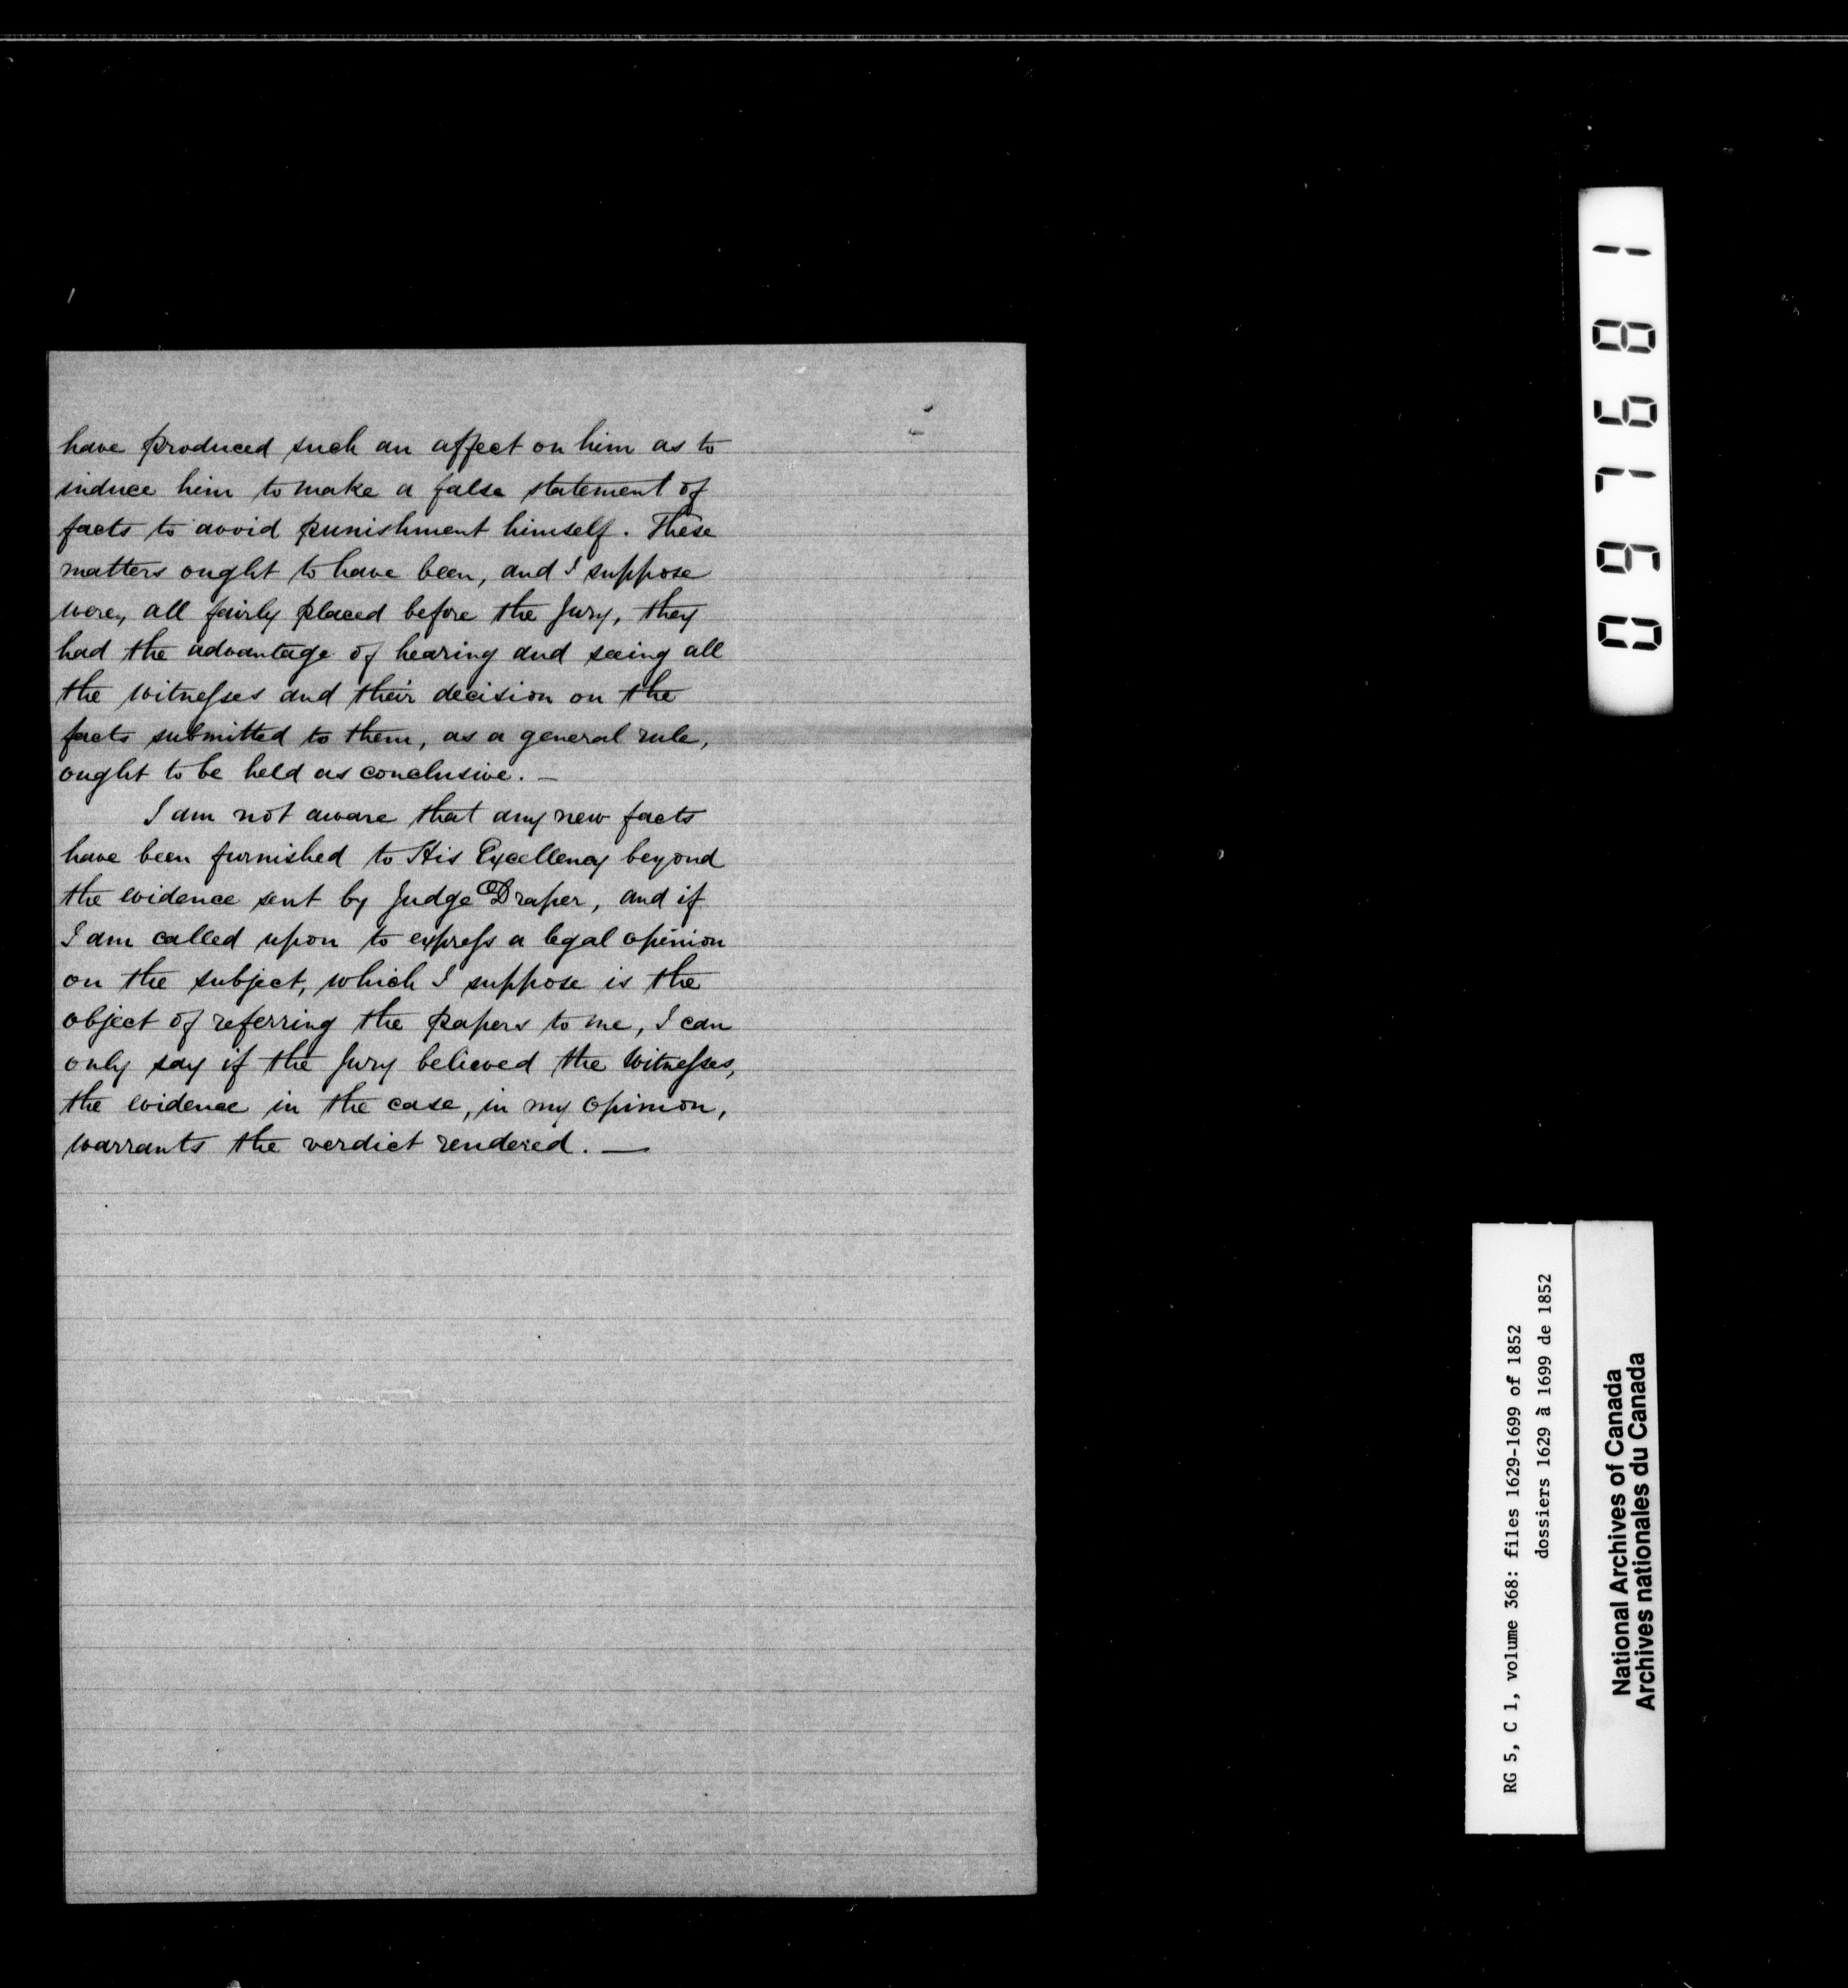 have produced such an affect on him as to
induce him to make a false statement of
facts to avoid punishment himself. These
matters ought to have been, and I suppose
were, all fairly placed before the Jury, they
had the advantage of hearing and seeing all
the witnesses and their decision on the
facts submitted to them, as a general rule,
ought to be held as conclusive. —
I am not aware that any new facts
have been furnished to His Excellency beyond
the evidence sent by Judge Draper, and if
I am called upon to express a legal opinion
on the subject, which I suppose is the
object of referring the papers to me, I can
only say if the Jury believed the witnesses,
the evidence in the case, in my opinion,
warrants the verdict rendered. —
097681
RG 5, C 1, volume 368: files 1629-1699 of 1852
dossiers 1629 à 1699 de 1852
National Archives of Canada
Archives nationales du Canada